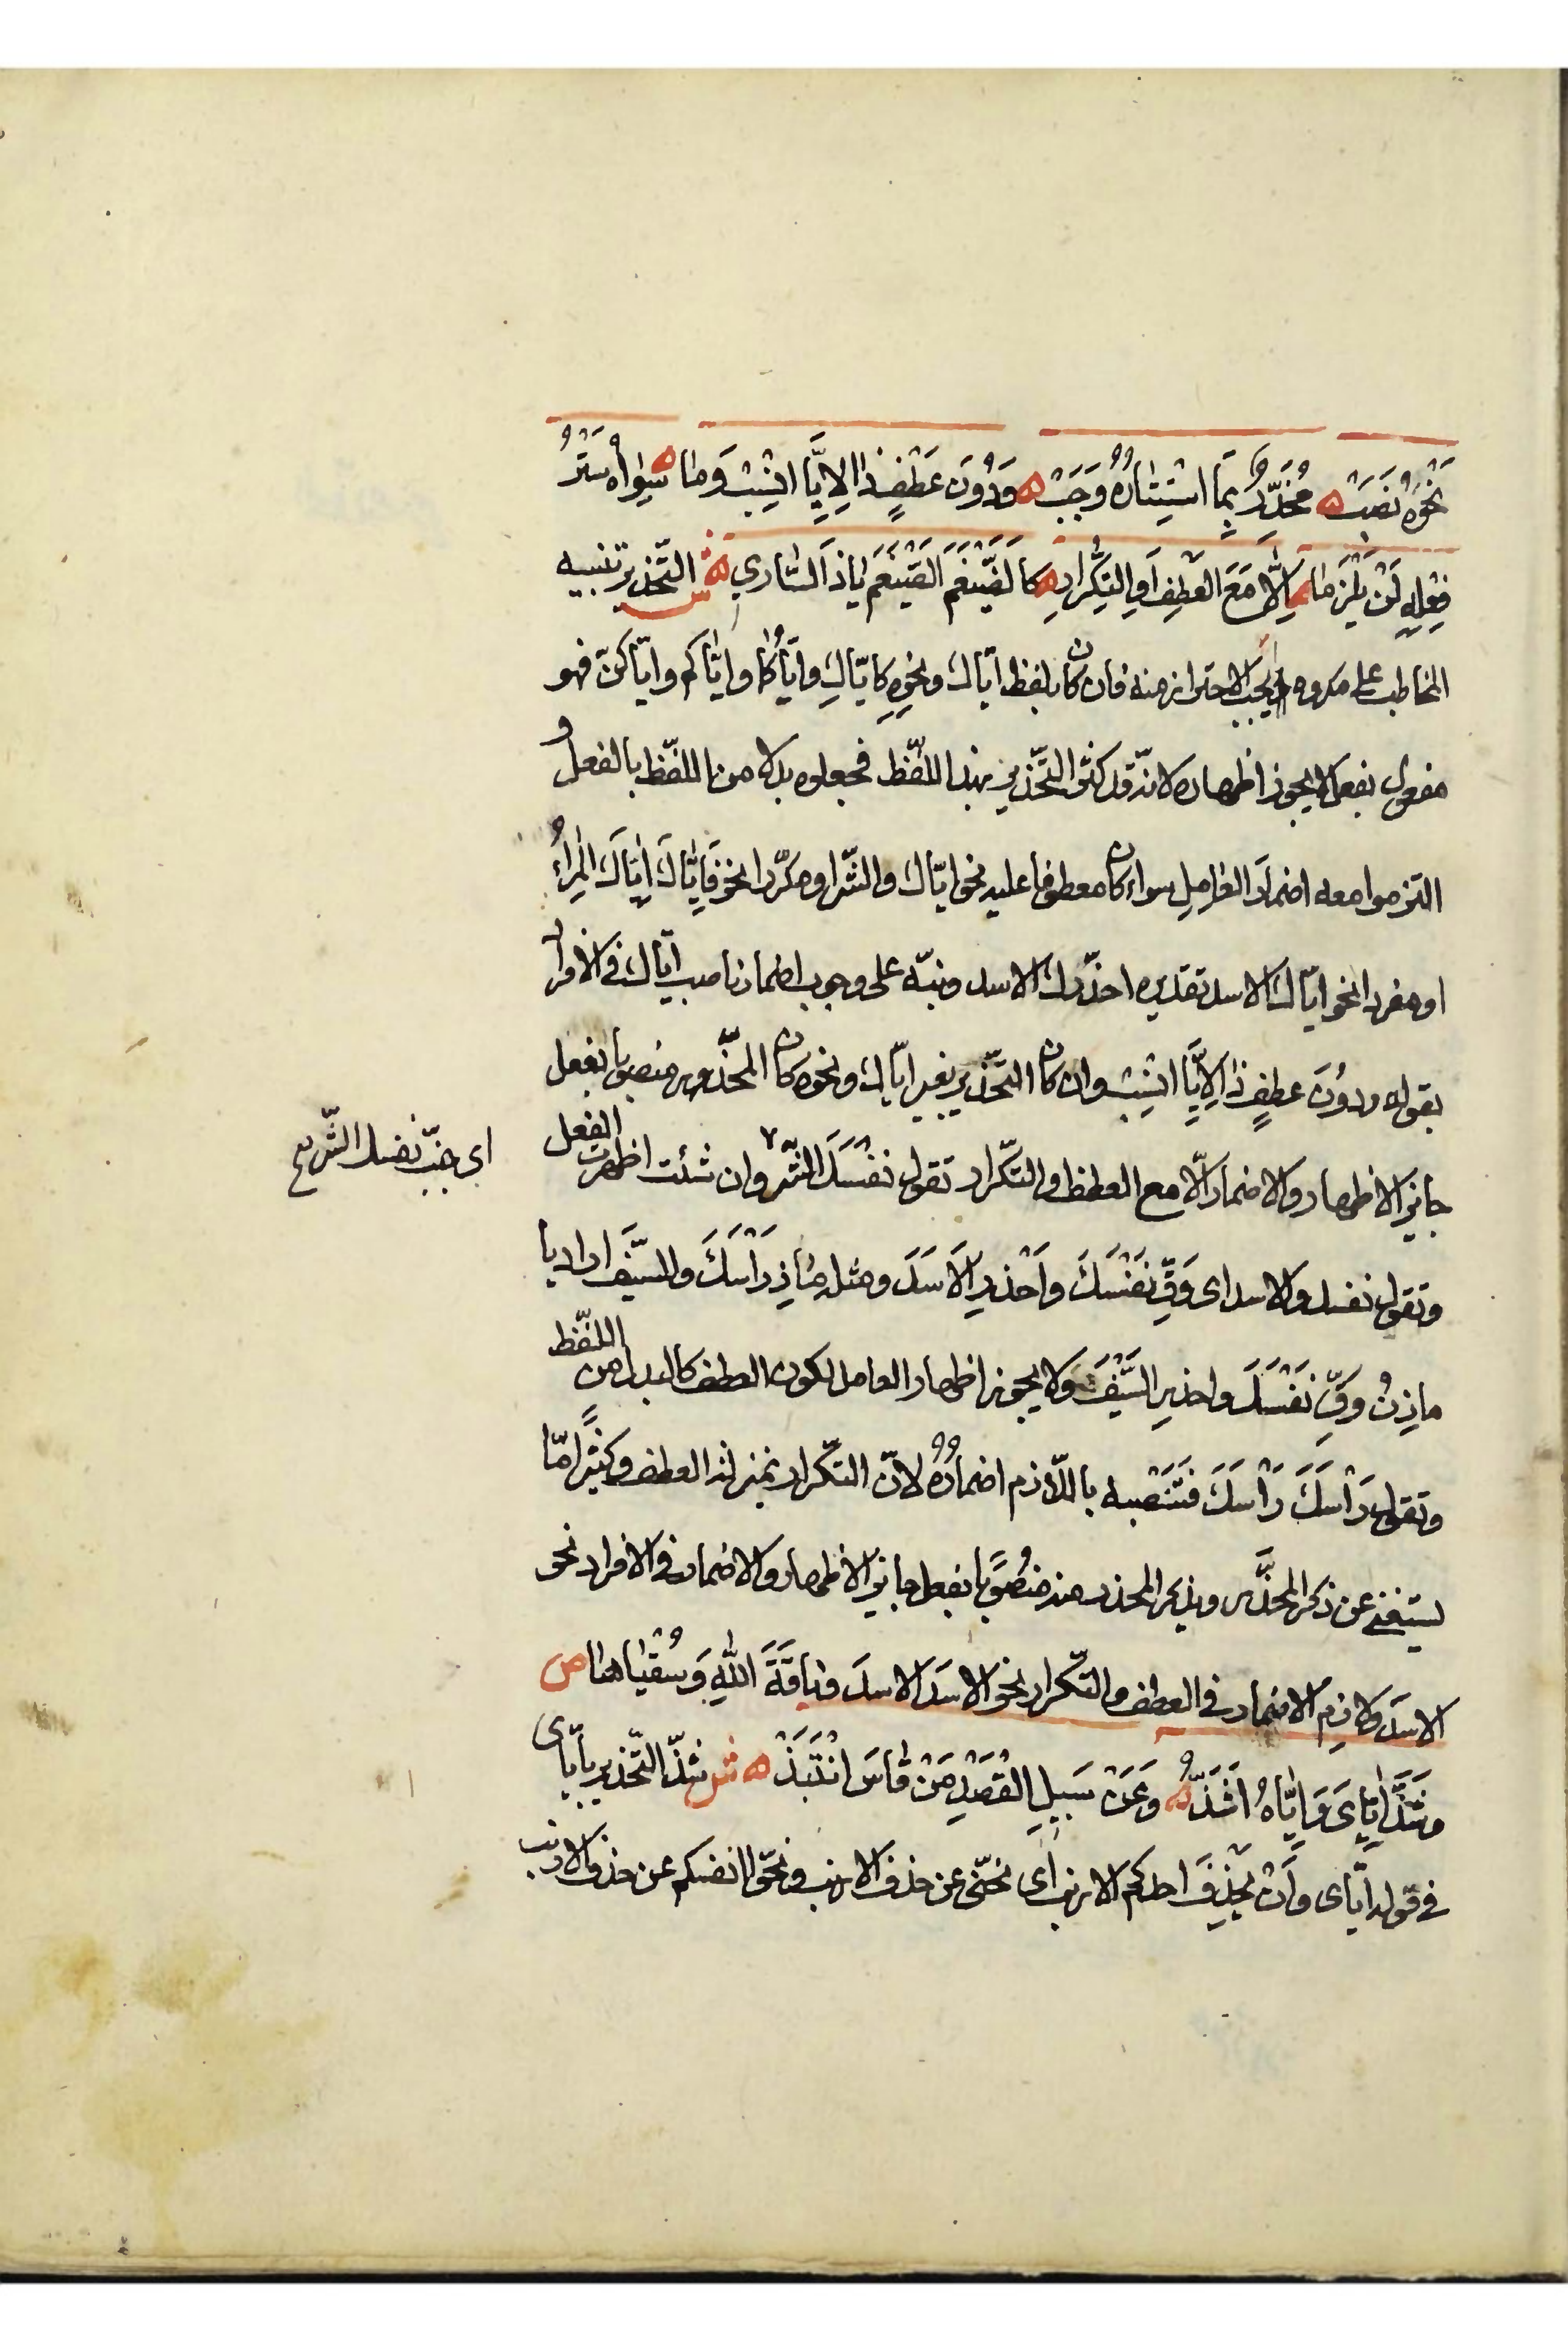 نَحْوَهُ نَصَبْ ه مُحَذِّرٌ بِمَا اسْتِتَارُهُ وَجَبْ ه وَدُونَ عَطْفٍ ذَا لِإِيَّا انْسِبْ وَمَا ه سِوَاهُ سَتْرُ
فِعْلِهِ لَنْ يَلْزَمَا ه اِلَّا مَعَ الْعَطْفِ اَوِ التِّكْرَارِ ه كَالضَّيْغَمَ الضَّيْغَمَ يَا ذَا السَّارِي ه ش التّحذير تنبيه
المخاطب على مكروه يجب الاحتراز منه فان كان بلفظ ايّاك ونحوِهِ كايّاكِ وايّاكما وايّاكم وايّاكنّ فهو
مفعول بفعل لا يجوز اظهاره لانّه قد كثر التّحذير بهذا اللّفظ فجعلوه بدلا من اللّفظ بالفعل و
التزموا معه اضمار العامل سواء كان معطوفا عليه نحو ايّاك والشّر او مكرّرا نحو فَاِيَّاكَ اِيَّاكَ الْمِرَاءَ
او مفردا نحو ايّاك الاسد تقديره احذّرك الاسد ونبّه على وجوب اضمار ناصب ايّاك في الافراد
بقوله ودُونَ عطفٍ ذا لِاِيَّا انْسِبْ وان كان التحّذير بغير ايّاك ونحوه كان المحذّر منصوبا بفعل
جايز الاظهار والاضمار الّا مع العطف والتكّرار تقول نفْسَكَ الشّر وان شئت اظهرت الفعل
اى جنّب نفسك الشّر مع
وتقول نفسك والاسد اى وَقِّ نَفْسَكَ واَحْذَرِ الاَسَدَ ومثله مَازِ رَاْسَكَ والسّيْفَ اراد يا
مازِنُ وقِّ نَفْسَكَ واحذرِ السَّيْفَ ولا يجوز اظهار العامل لكون العطف كالبدل من اللّفظ
وتقول رَاْسَكَ رَاْسَكَ فتَنْصبه باللّازم اضمارُهُ لانّ التكّرار بمنزلة العطف وكثيرًا مّا
يستغنى عن ذكر المحذَّر ويذكر المحذر منه منصُوبًا بفعل جايز الاظهار والاضمار في الافراد نحو
الاسدَ ولازم الاضمار في العطف والتّكرار نحو الاسدَ الاسدَ وناقَةَ اللهِ وَسُقْيَاهَا ص
وشَذَّ اِيَّاىَ وَاِيَّاهُ اَشَذُّ ه وَعَنْ سَبِيلِ الْقَصْدِ مَنْ قَاسَ انْتَبَذْ ه ش شذّ التّحذير بايّاى
في قوله ايّاى وَاَنْ يحْذِفَ احدكم الارنب اى نحّنى عن حذف الارنب ونحّوا انفسكم عن حذف الارنب